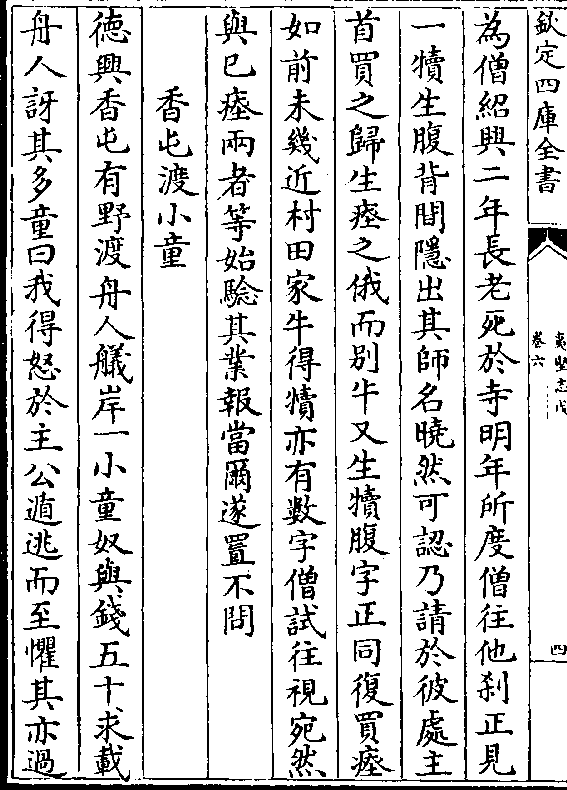 欽定四庫全書
夷堅志戊
卷六
四
為僧紹興二年長老死於寺明年所度僧往他刹正見
一犢生腹背間隱出其師名曉然可認乃請於彼處主
首買之歸生瘞之俄而别牛又生犢腹字正同復買瘞
如前未幾近村田家牛得犢亦有數字僧試往視宛然
與已瘞兩者等始驗其業報當爾遂置不問
香屯渡小童
徳興香屯有野渡舟人艤岸一小童奴與錢五十求載
舟人訝其多童曰我得怒於主公遁逃而至懼其亦過